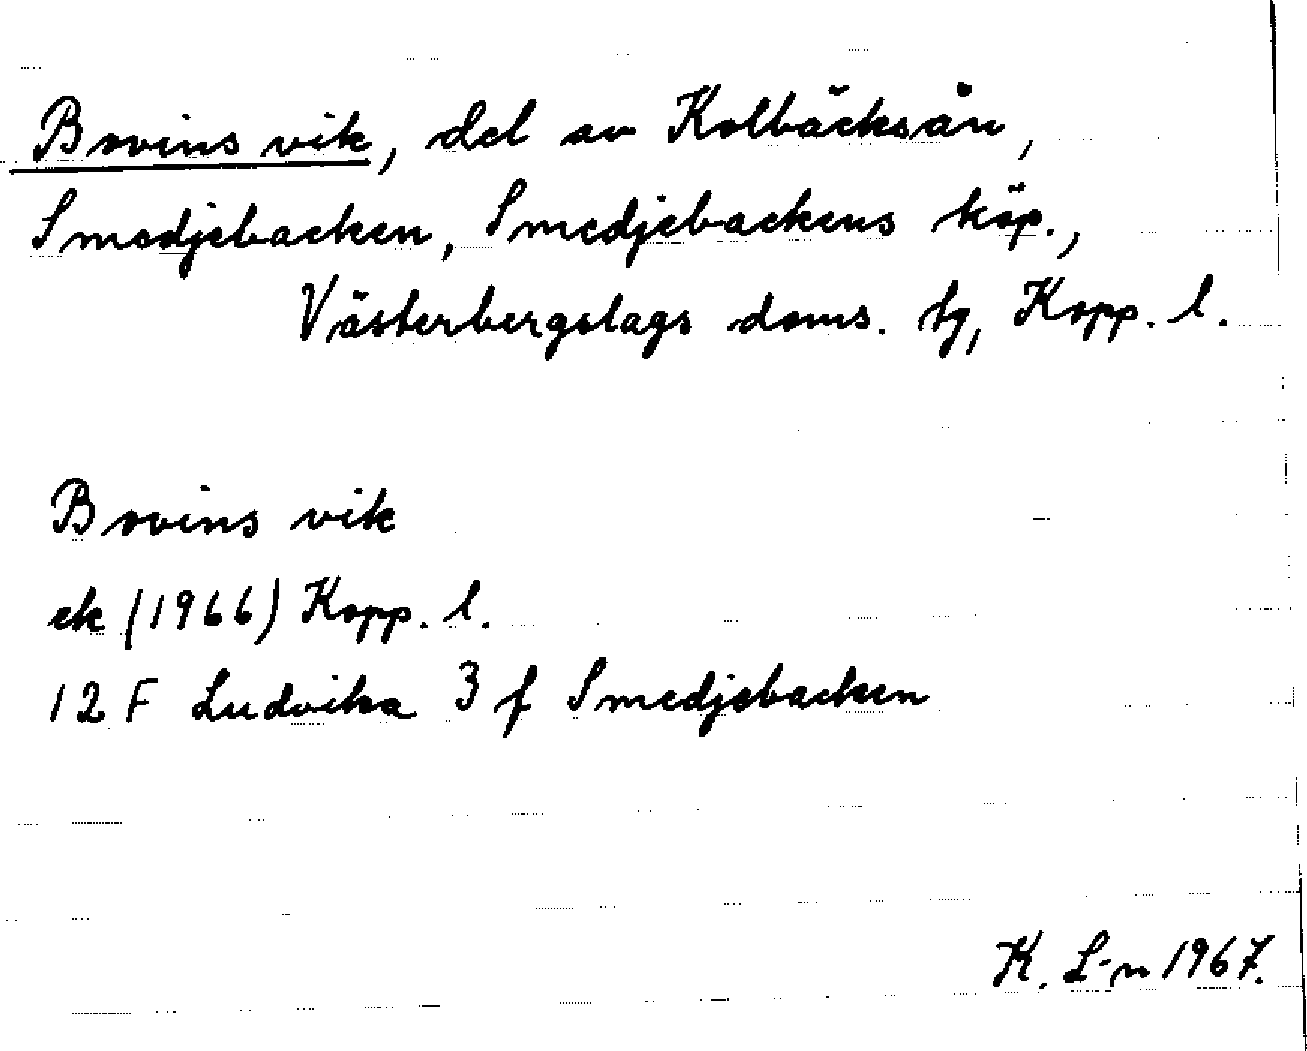 Bovins vik, del av Kolbäcksån,
Smedjebacken, Smedjebackens köp.,
Västerbergslags doms. tg, Kopp. l.
Bovins vik
ek (1966) Kopp. l.
12 F Ludvika 3 f Smedjebacken
K. L-n 1967.